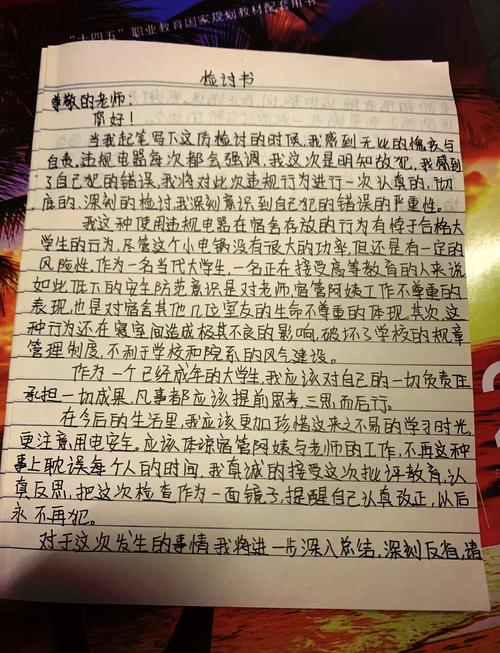 “十四五”职业教育国家规划教材配套用书
检讨书
尊敬的老师：
您好！
当我起笔写下这份检讨的时候，我感到无比的愧疚与
自责，违规电器每次都会强调，我这次是明知故犯，我感到
了自己犯的错误，我将对此次违规行为进行一次认真的，彻
底的，深刻的检讨，我深刻意识到自己犯的错误的严重性。
我这种使用违规电器在宿舍存放的行为有悖于合格大
学生的行为，尽管这个小电锅没有很大的功率，但还是有一定的
风险性。作为一名当代大学生，一名正在接受高等教育的人来说
如此低下的安全防范意识是对老师，宿管阿姨工作不尊重的
表现，也是对宿舍其他几位室友的生命不尊重的体现。其次，这
种行为还在寝室间造成极其不良的影响，破坏了学校的规章
管理制度，不利于学校和院系的风气建设。
作为一个已经成年的大学生，我应该对自己的一切负责任
承担一切成果，凡事都应该提前思考，三思而后行。
在今后的生活里，我应该更加珍惜这来之不易的学习时光，
更注意用电安全。应该体谅宿管阿姨与老师的工作，不再这种
事上耽误每个人的时间，我真诚的接受这次批评教育，认
真反思，把这次检查作为一面镜子，提醒自己认真改正，以后
永不再犯。
对于这次发生的事情，我将进一步深入总结，深刻反省，请